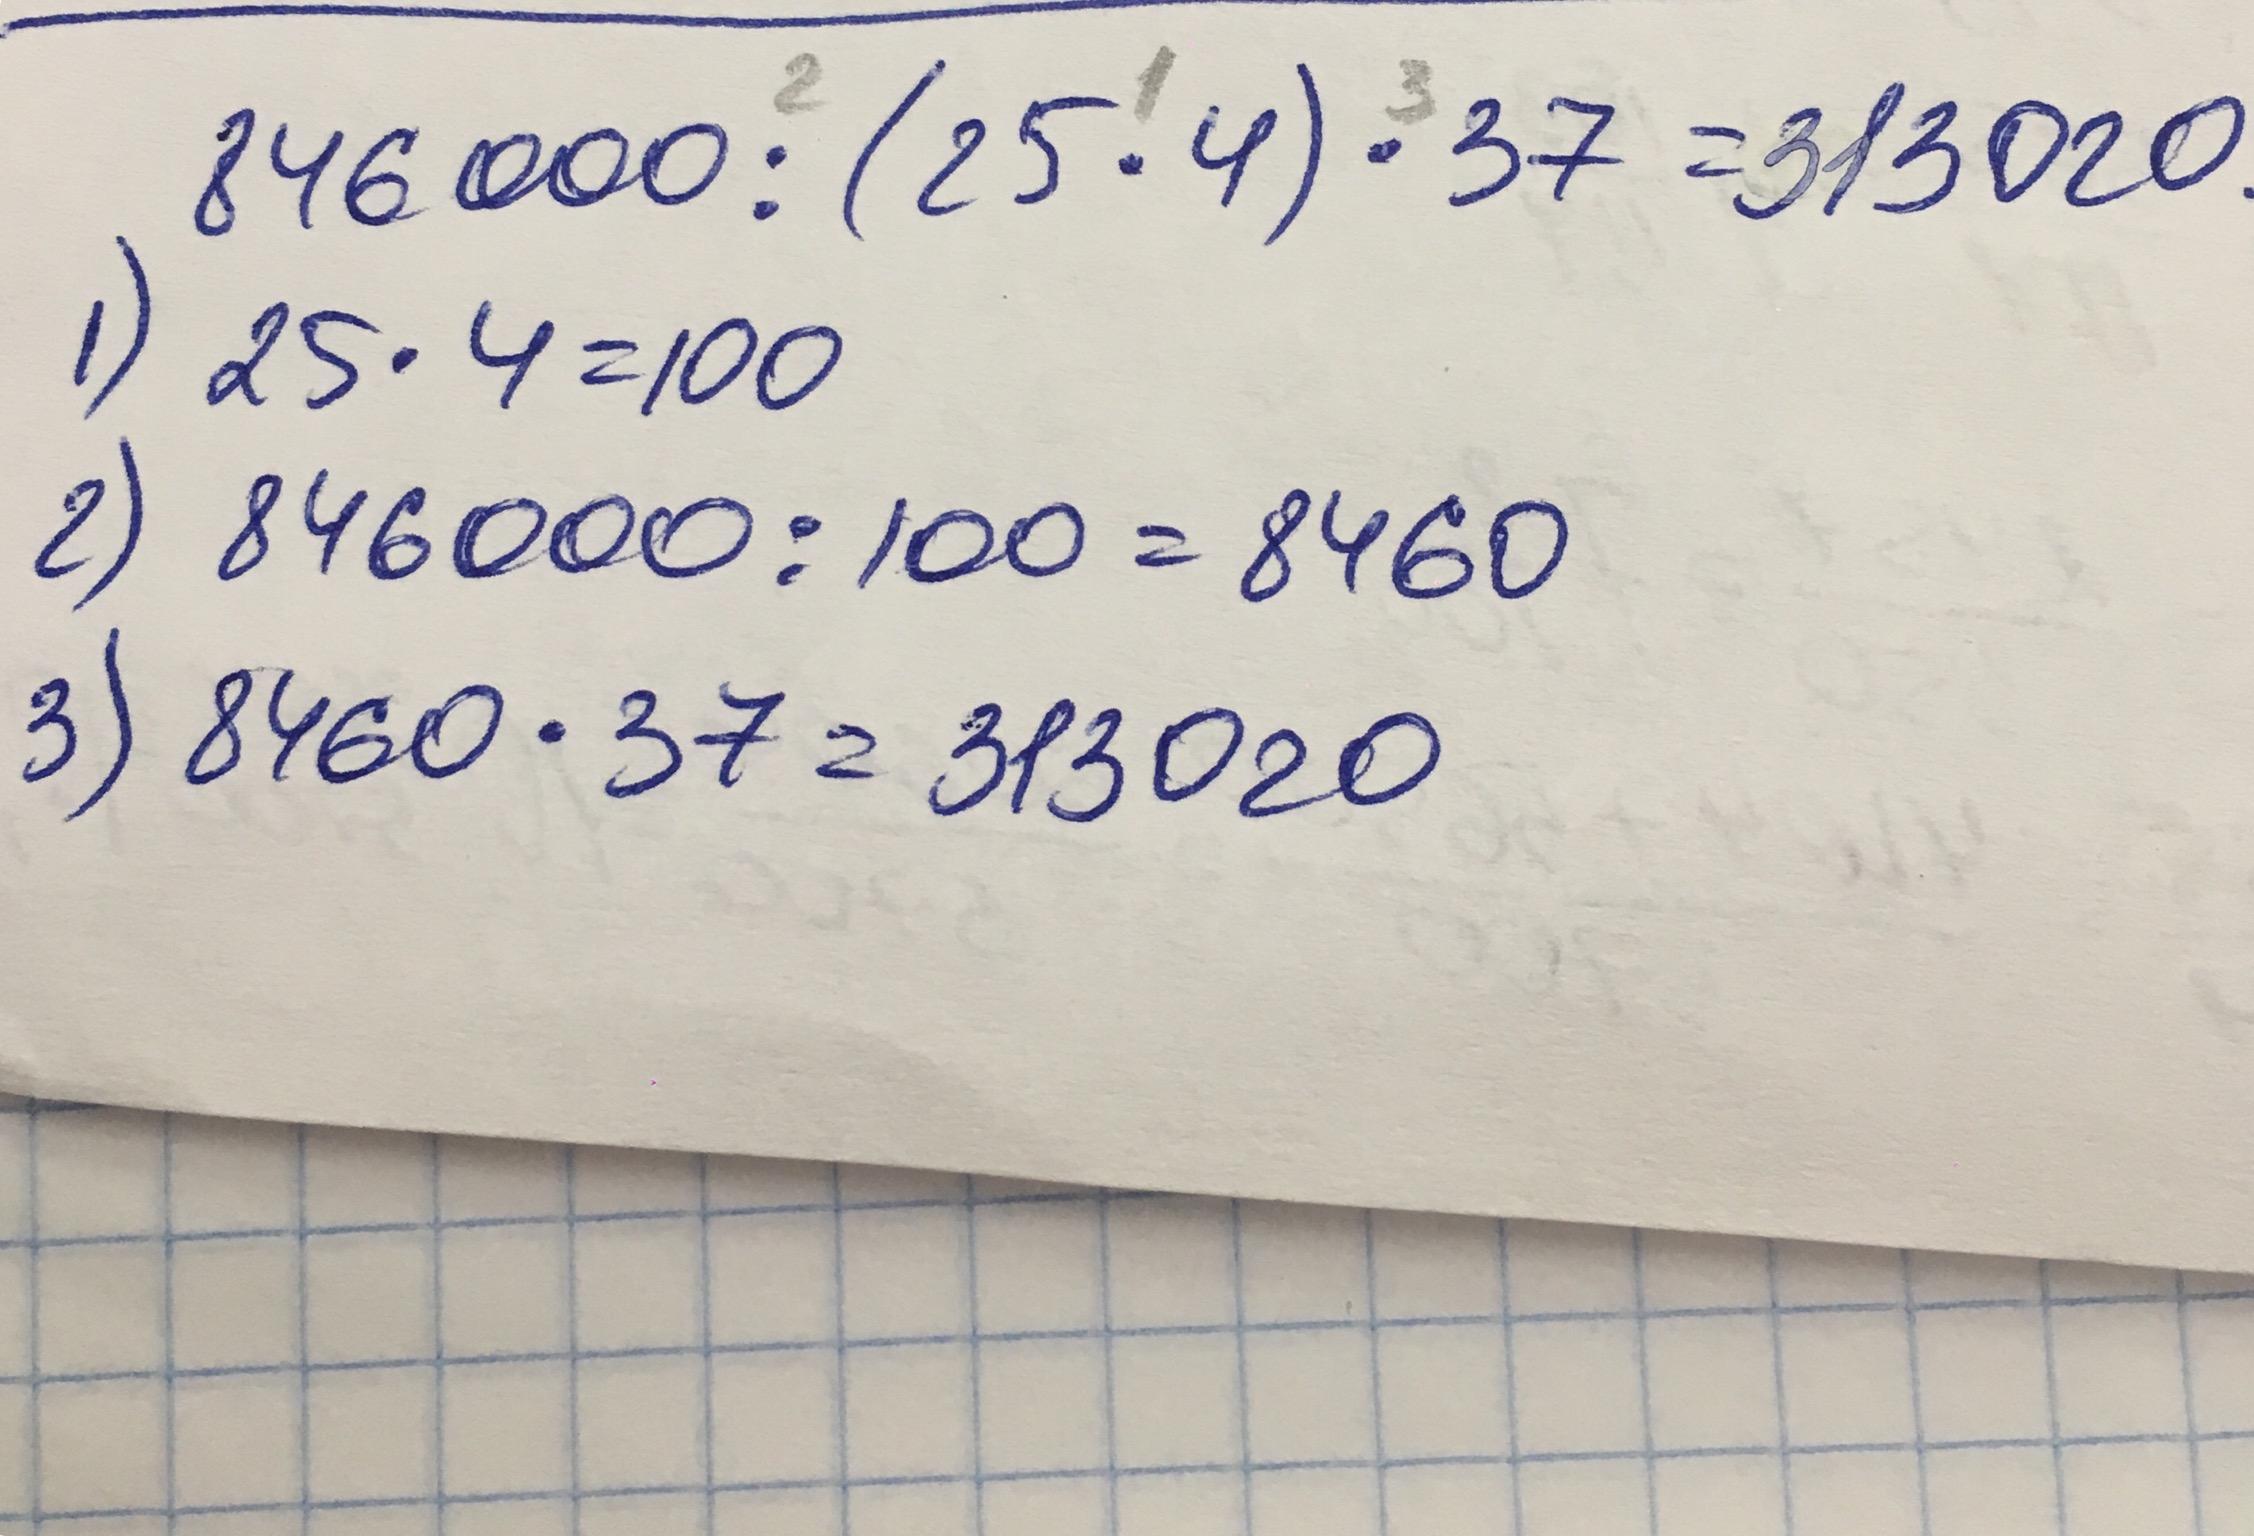 2 1 3
846000 : (25 · 4) · 37 = 313020.
1) 25 · 4 = 100
2) 846000 : 100 = 8460
3) 8460 · 37 = 313020